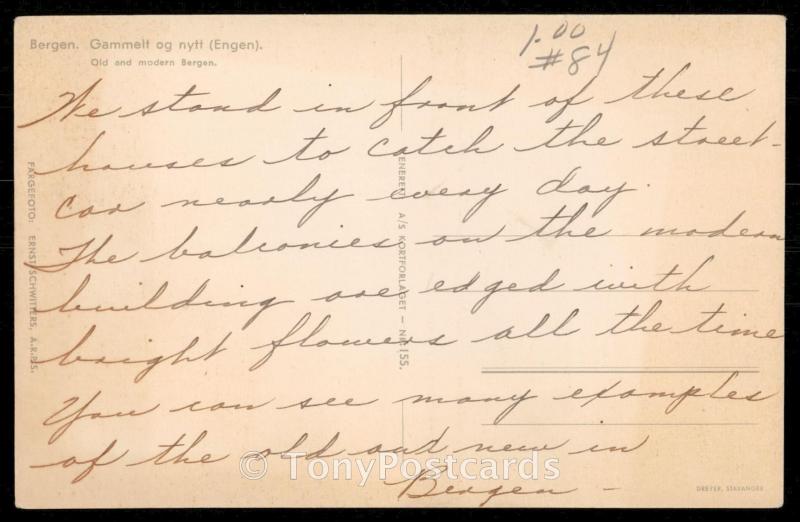 Bergen. Gammelt og nytt (Engen).
Old and modern Bergen.
1.00
#84
We stand in front of these
houses to catch the street-
car nearly every day.
The balconies on the modern
building are edged with
bright flowers all the time
You can see many examples
of the old and new in
Bergen -
FARGEFOTO: ERNST SCHWITTERS, A.R.P.S.
ENERETT A/S KORTFORLAGET — NR. 155.
© TonyPostcards
DREYER, STAVANGER